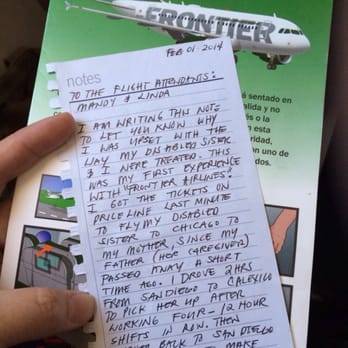 FRONTIER
FEB 01-2014
notes
TO THE FLIGHT ATTENDANTS:
MANDY & LINDA
I AM WRITING THIS NOTE
TO LET YOU KNOW WHY
I WAS UPSET WITH THE
WAY MY DISABLED SISTER
& I WERE TREATED. THIS
WAS MY FIRST EXPERIENCE
WITH "FRONTIER AIRLINES".
I GOT THE TICKETS ON
PRICELINE LAST MINUTE
TO FLY MY DISABLED
SISTER TO CHICAGO TO
MY MOTHER, SINCE MY
FATHER (HER CAREGIVER)
PASSED AWAY A SHORT
TIME AGO. I DROVE 2 HRS
FROM SAN DIEGO TO CALEXICO
TO PICK HER UP AFTER
WORKING FOUR - 12 HOUR
SHIFTS IN A ROW. THEN
BACK TO SAN DIEGO
MAKE
sentado en
salida y no
és o la
esta
idad,
an uno de
dos.